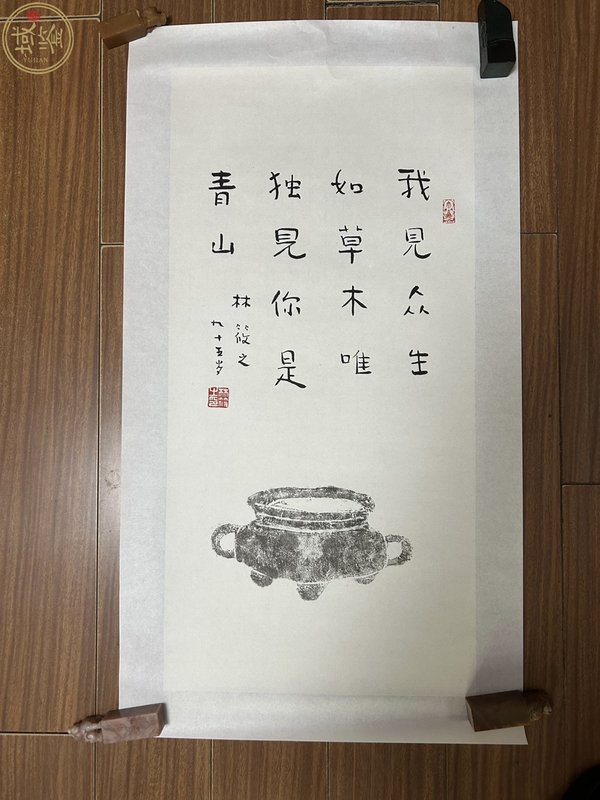 我見众生
如草木唯
独見你是
青山
林筱之
九十五岁
YUJIAN